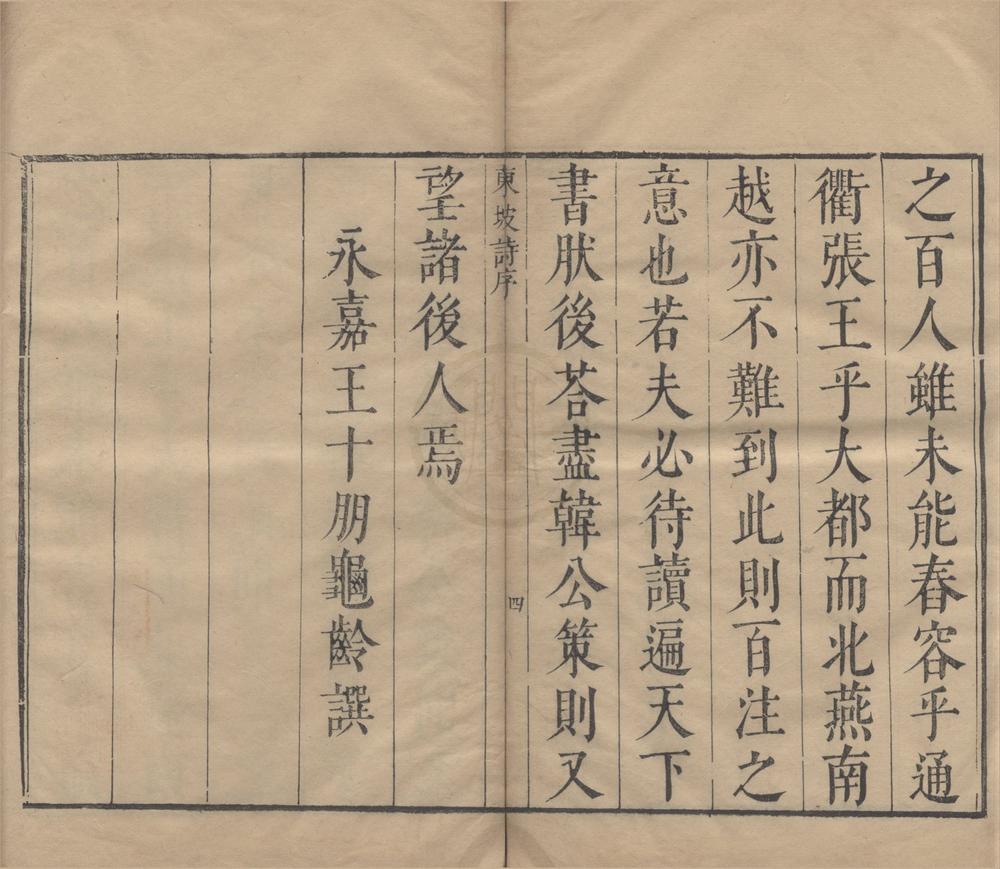 之百人雖未能舂容乎通
衢張王乎大都而北燕南
越亦不難到此則百注之
意也若夫必待讀遍天下
書肰後荅盡韓公策則又
東坡詩序
四
望諸後人焉
永嘉王十朋龜齡譔